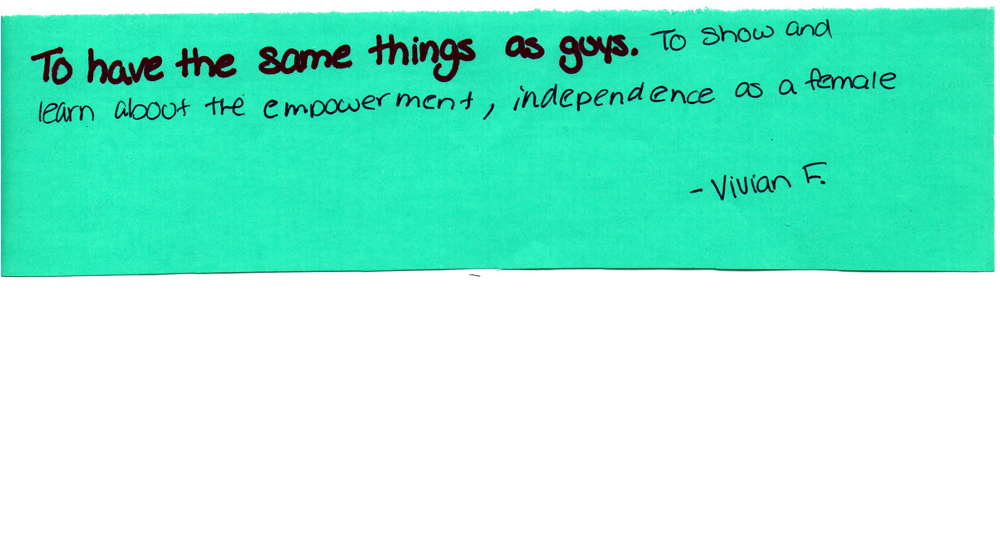 To have the same things as guys. To show and
learn about the empowerment, independence as a female
- Vivian F.